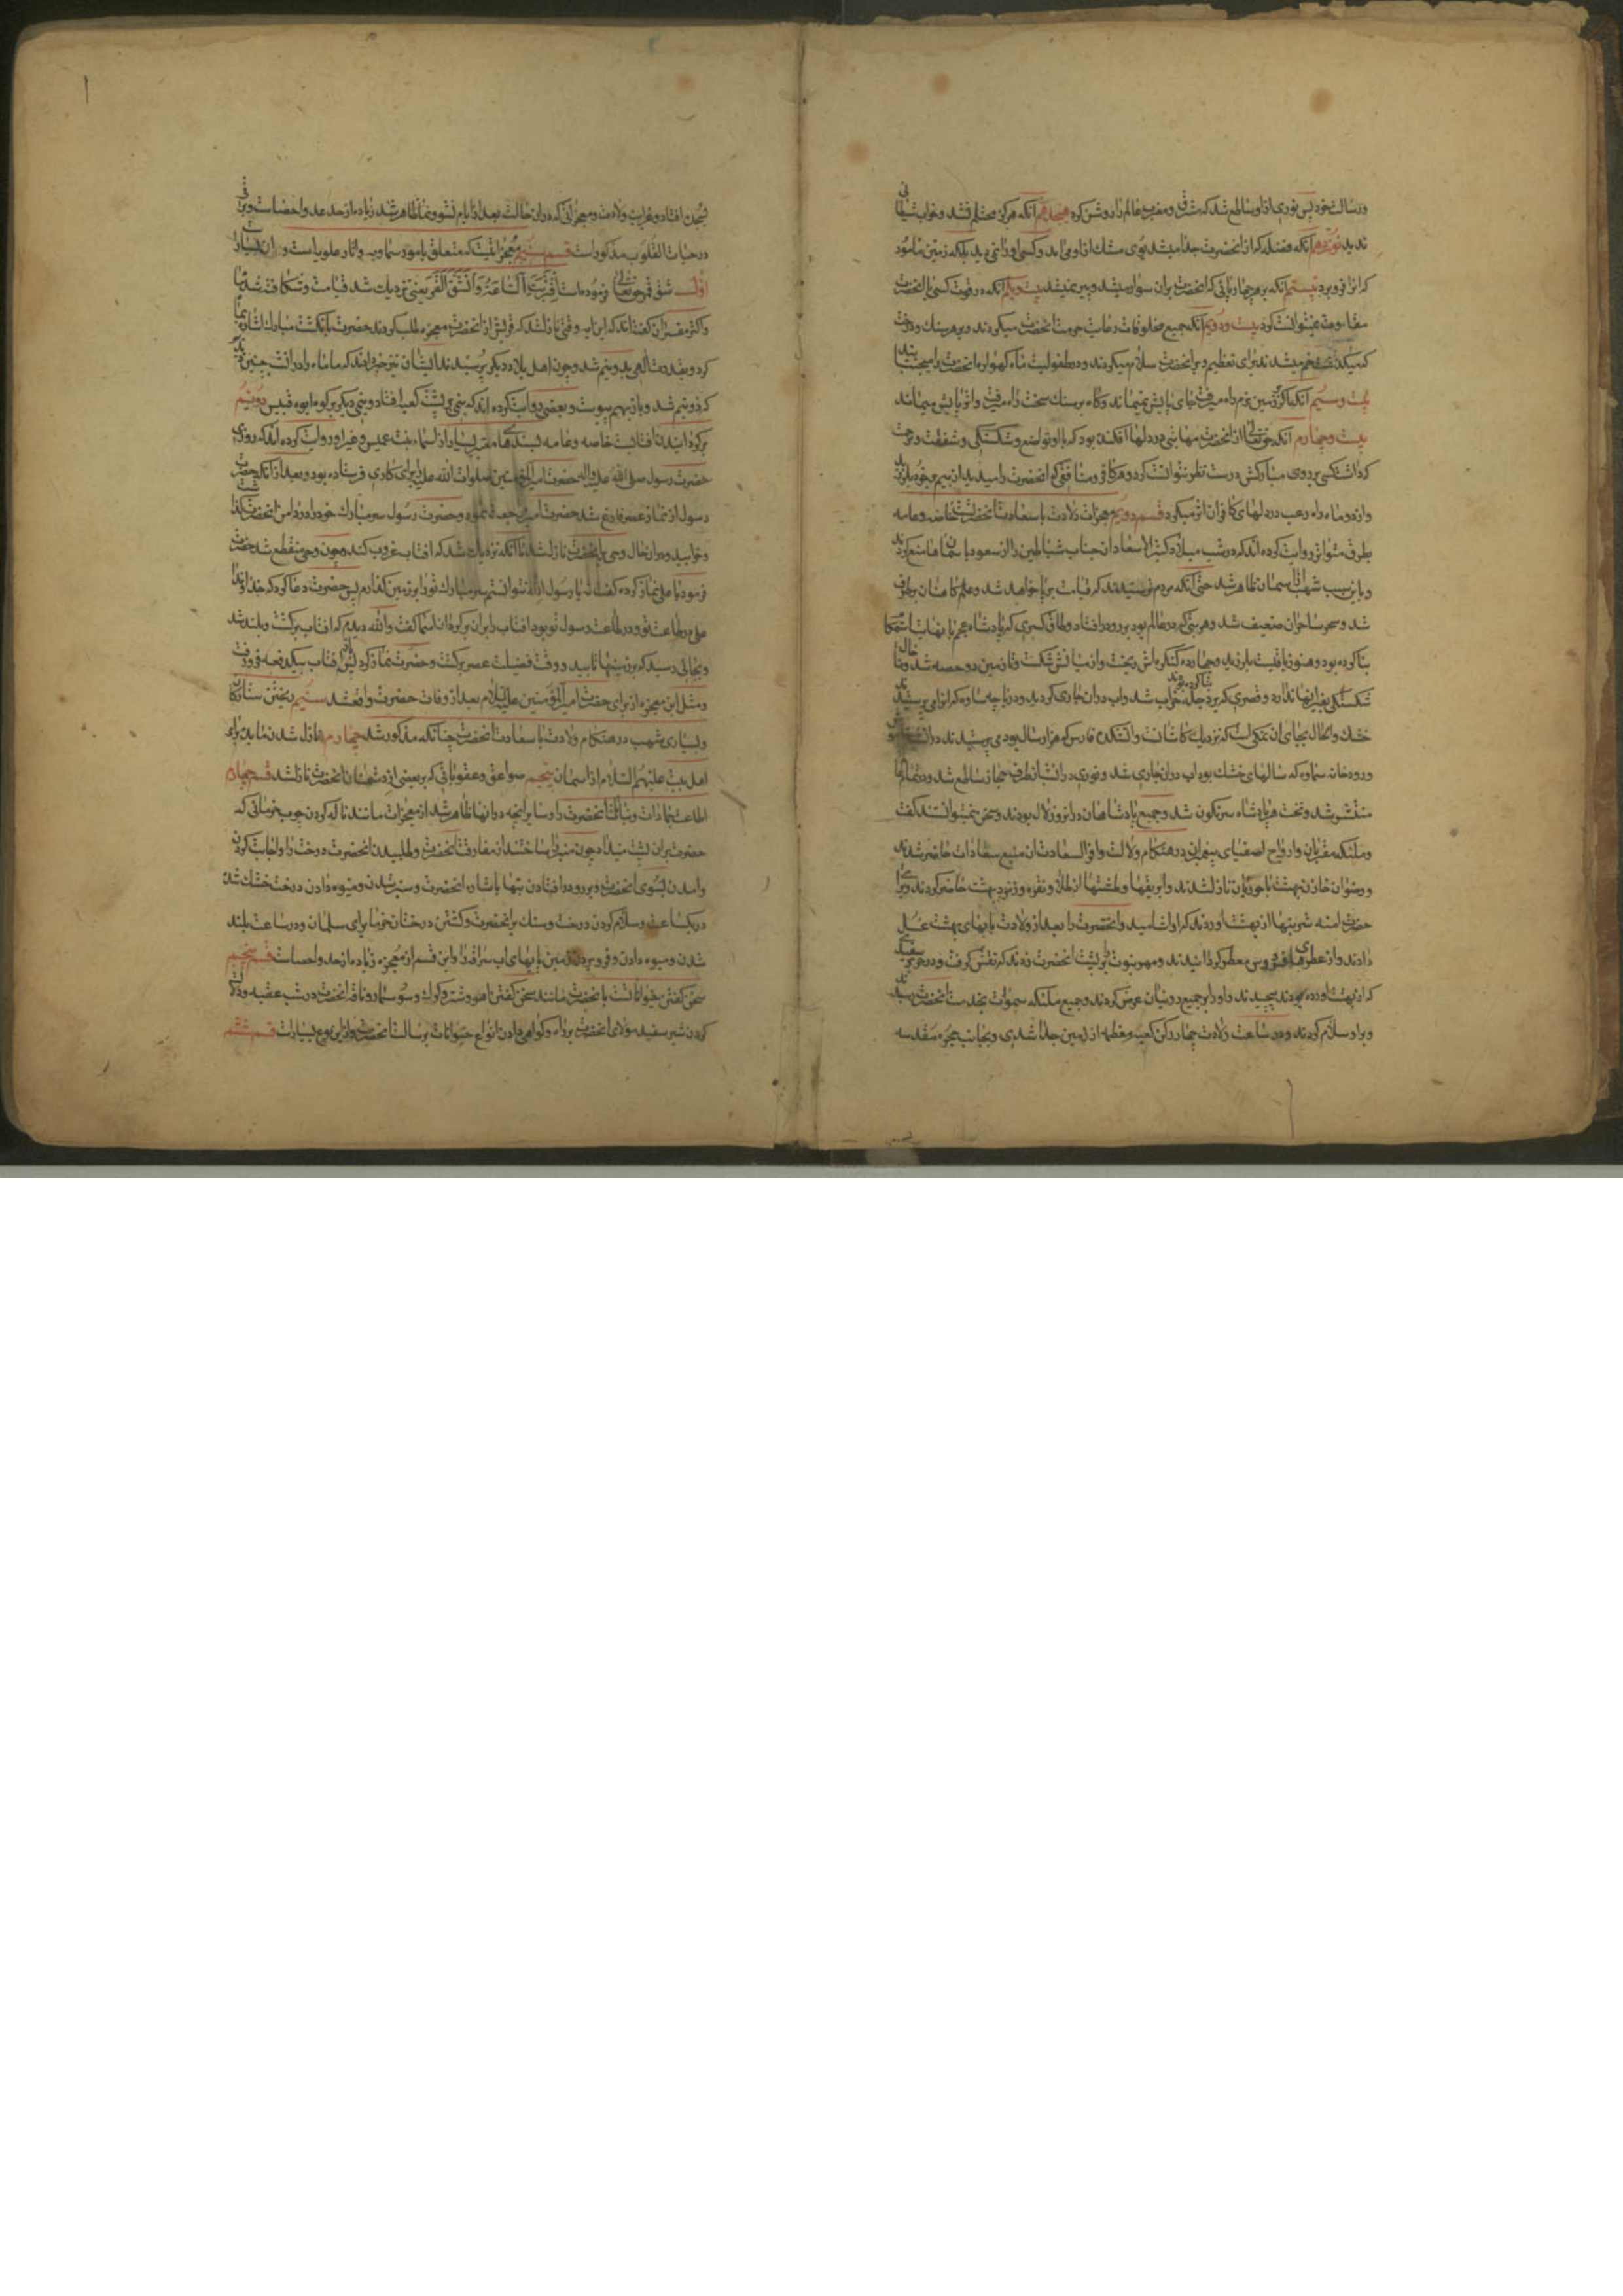 و رسالت خود پس نوری از او ساطع شد که مشرق و مغرب عالم را روشن کرد هیجدهم آنکه هرگز محتلم نشد و خواب شیطانی
ندید نوزدهم آنکه فضله که از آنحضرت جدا میشد بوی مشک از او می آمد و کسی او را نمی دید بلکه زمین مأمور بود
که آنرا فرو برد بیستم آنکه بر هر چهارپائی که آنحضرت بر آن سوار میشد پیر نمیشد بیست و یکم آنکه در قوت کسی با آنحضرت
مقاومت نمیتوانست کرد بیست و دویم آنکه جمیع مخلوقات رعایت حرمت آنحضرت میکردند و بر هر سنک و درخت
که میگذشت خم میشدند برای تعظیم و بر آنحضرت سلام میکردند و در طفولیت ماه گهواره آنحضرت را میجنبانید
بیست و سیم آنکه اگر بر زمین نرم راه میرفت جای پایش نمیماند و گاه بر سنک سخت راه میرفت و اثر پایش میماند
بیست و چهارم آنکه حقتعالی از آنحضرت مهابتی در دلها افکنده بود که با آن تواضع و شکستگی و شفقت و مرحمت
که داشت کسی بر روی مبارکش درست نظر نتوانست کرد و هر کافر و منافقی که آنحضرت را میدید از بیم بر خود میلرزید
و از دو ماه راه رعب در دلهای کافران اثر میکرد قسم دویم معجزات ولادت با سعادت آنحضرت است خاصه و عامه
بطرق متواتر روایت کرده اند که در شب میلاد کثیر الاسعاد آن جناب شیاطین را از صعود بآسمانها منع کردند
و باین سبب شهب از آسمان ظاهر شد حتی آنکه مردم ترسیدند که قیامت برپا خواهد شد و علم کاهنان برطرف
شد و سحر ساحران ضعیف شد و هر بتی که در عالم بود بر رو در افتاد و طاق کسری که پادشاه عجم با نهایت استحکام
بنا کرده بود و هنوز باقیست بلرزید و چهارده کنگره اش ریخت و از میانش شکست و تا زمین دو حصه شد و تا حال
شکستگی بغیر آنها ندارد و قصری که بر دجله بنا کرده بودند خراب شد و آب در آن جاری گردید و دریاچه ساوه که آنرا می پرستیدند
خشک و الحال بجای آن نمکی است که نزدیک کاشانست و آتشکده فارس که هزار سال بود می پرستیدند در آن شب خاموش
و رودخانه سماوه که سالهای خشک بود آب در آن جاری شد و نوری در آن شب از طرف حجاز ساطع شد و در تمام عالم
منتشر شد و تخت هر پادشاه سرنگون شد و جمیع پادشاهان در آنروز لال بودند و سخن نمیتوانستند گفت
و ملئکه مقربان و ارواح اصفیای پیغمبران در هنگام ولادت وافر السعادت آن منبع سعادات حاضر شدند
و رضوان خازن بهشت با حوریان نازل شدند و ابریقها و طشتها از طلا و نقره و زمرد بهشت حاضر کردند و برای
حضرت آمنه شربتها از بهشت آوردند که او آشامید و آنحضرت را بعد از ولادت بآبهای بهشت غسل
دادند و از عطرهای فردوس معطر گردانیدند و مهر نبوت بر پشت آنحضرت زدند که نقش گرفت و در حریر سفید
که از بهشت آورده بودند پیچیدند و او را بر جمیع روحانیان عرض کردند و جمیع ملئکه سموات بخدمت آنحضرت رسیدند
و بر او سلام کردند و در ساعت ولادت چهار رکن کعبه معظمه از زمین جدا شدی و بجانب حجره مقدسه
بسجده افتاد و غرایب ولادت و معجزاتی که در آن حالت بعد از ایام نشو و نما ظاهر شد زیاده از حد عد و احصاست و برخی
در حیات القلوب مذکور است قسم سیم معجزاتیست که متعلق بامور سماویه و آثار علویاست و آن بسیار است
اول شق قمر حق تعالی فرموده است اقتربت الساعة و انشق القمر یعنی نزدیک شد قیامت و شکافته شد ماه
و اکثر مفسران گفته اند که این آیه وقتی نازل شد که قریش از آنحضرت معجزه طلب کردند حضرت بانگشت مبارک اشاره بماه
کرد و بقدرت الهی بدو نیم شد و چون اهل بلاد دیگر پرسیدند ایشان نیز خبر دادند که ما ماه را در آنشب چنین دیدیم
که دو نیم شد و باز بهم پیوست و بعضی روایت کرده اند که نیمی بر پشت کعبه افتاد و نیمی دیگر بر کوه ابو قبیس دویم
برگردانیدن آفتابست خاصه و عامه بسندهای معتبر بسیار از اسماء بنت عمیس و غیر او روایت کرده اند که روزی
حضرت رسول صلی الله علیه و آله حضرت امیر المؤمنین صلوات الله علیه را برای کاری فرستاده بود و بعد از آنکه حضرت
رسول از نماز عصر فارغ شد حضرت امیر مراجعت نمود و حضرت رسول سر مبارک خود را در دامن آنحضرت گذاشت
و خوابید و در آن حال وحی بآنحضرت نازل شد تا آنکه نزدیک شد که آفتاب غروب کند و چون وحی منقطع شد حضرت
فرمود یا علی نماز کرده گفت نه یا رسول الله نتوانستم سر مبارک تو را بر زمین گذارم پس حضرت دعا کرد که خداوندا
علی در طاعت تو و در طاعت رسول تو بود آفتاب را بر آن برگردان اسما گفت و الله دیدم که آفتاب برگشت و بلند شد
و بجائی رسید که بر زمینها تابید و وقت فضیلت عصر برگشت و حضرت نماز کرد پس آفتاب بیکدفعه فرو رفت
و مثل این معجزه از برای حضرت امیر المؤمنین علیه السلام بعد از وفات حضرت واقع شد سیم ریختن ستارگان
و بسیاری شهب در هنگام ولادت با سعادت آنحضرت چنانکه مذکور شد چهارم نازل شدن مائده برای
اهل بیت علیهم السلام از آسمان پنجم صواعق و عقوباتی که بر بعضی از دشمنان آنحضرت نازل شد قسم چهارم
اطاعت جمادات و نباتات آنحضرت را و سایر آنچه در آنها ظاهر شد از معجزات مانند ناله کردن چوب خرمائی که
حضرت بر آن پشت میداد چون منبر را ساختند از مفارقت آنحضرت و طلبیدن آنحضرت درخت را و اجابت کردن
و آمدن بسوی آنحضرت و بر رو در افتادن بتها باشاره آنحضرت و سبز شدن و میوه دادن درخت خشک شده
در یکساعت و سلام کردن درخت و سنک بر آنحضرت و کشتن درختان خرما برای سلمان و در ساعت بلند
شدن و میوه دادن و فرو بردن زمین پایهای اسب سراقه را و این قسم از معجزه زیاده از حد و احصاست قسم پنجم
سخن گفتن حیواناتست با آنحضرت مانند سخن گفتن آهو و شتر و گرگ و سوسمار و ناقه آنحضرت در شب عقبه و دلالت
کردن شیر سفینه مولای آنحضرت را براه و گواهی دادن انواع حیوانات برسالت آنحضرت و از این نوع بسیار است قسم ششم